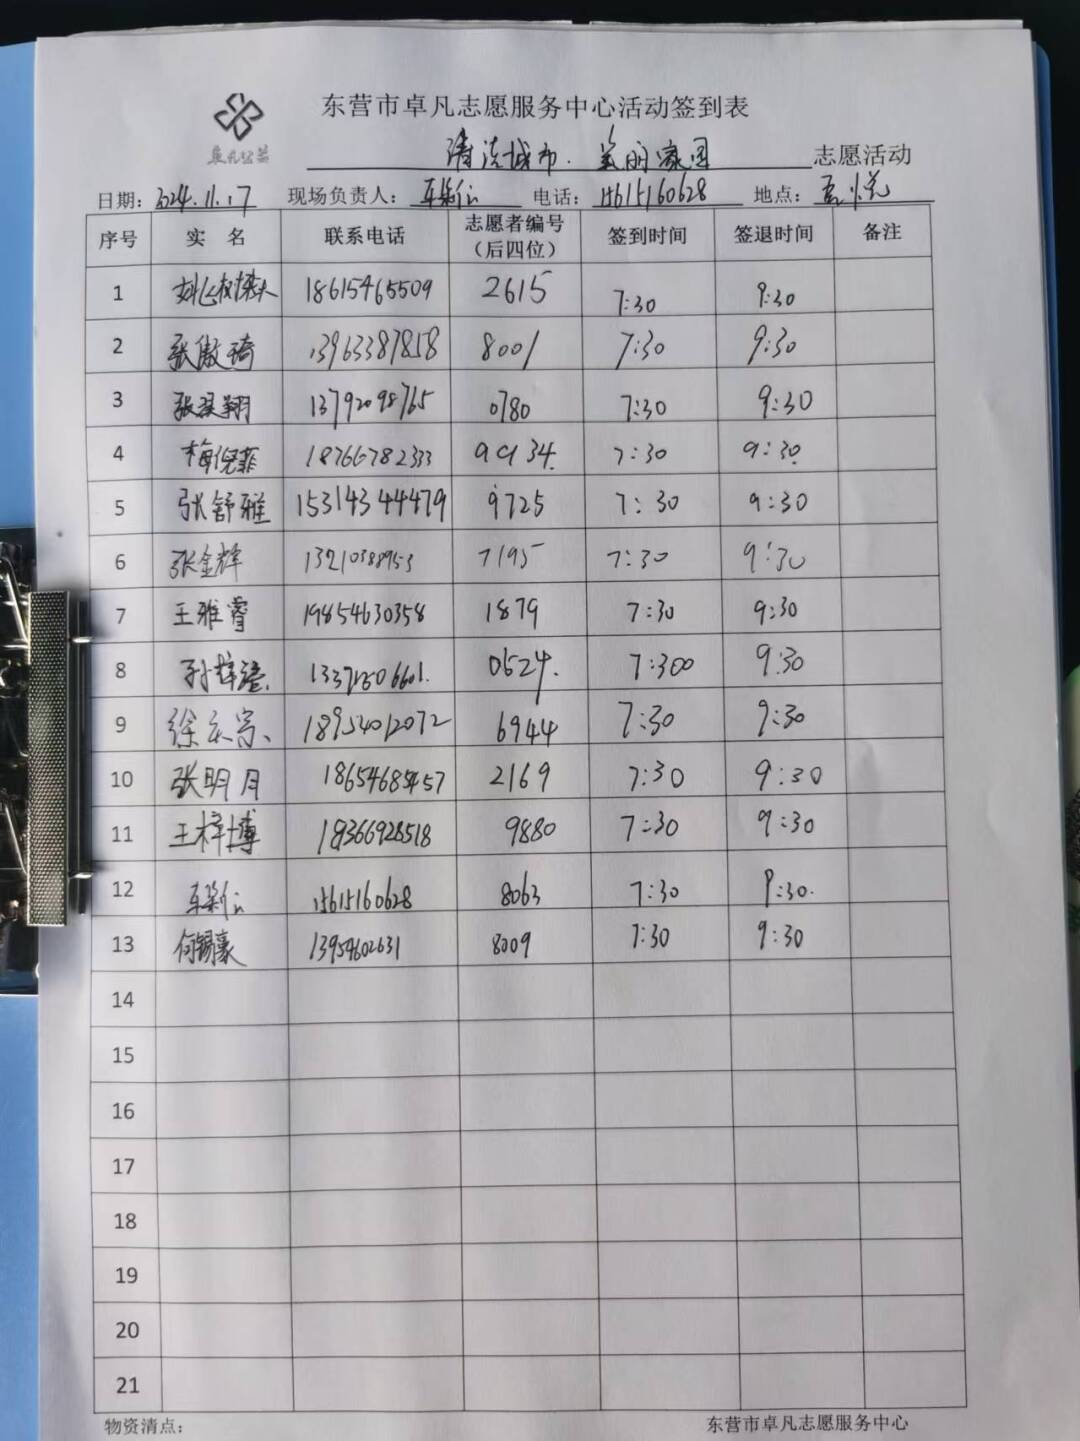 东营市卓凡志愿服务中心活动签到表
卓凡公益
清洁城市.美丽家园 志愿活动
日期: 2024.11.17 现场负责人: 电话: 15615160628 地点:
序号 实 名 联系电话 志愿者编号(后四位) 签到时间 签退时间 备注
1 18615465509 2615 7:30 9:30
2 张傲琦 13963387858 8001 7:30 9:30
3 13792098765 0780 7:30 9:30
4 梅倪菲 18766782333 9934. 7:30 9:30.
5 张舒雅 15314344479 9725 7:30 9:30
6 张金辉 13210388953 7195 7:30 9:30
7 王雅睿 19854630358 1879 7:30 9:30
8 0524. 7:300 9:30
9 徐庆宗 18954012072 6944 7:30 9:30
10 张明月 18654685457 2169 7:30 9:30
11 王梓博 18366928518 9880 7:30 9:30
12 15615160628 8063 7:30 9:30.
13 何锡豪 13954602631 8009 7:30 9:30
14
15
16
17
18
19
20
21
物资清点: 东营市卓凡志愿服务中心